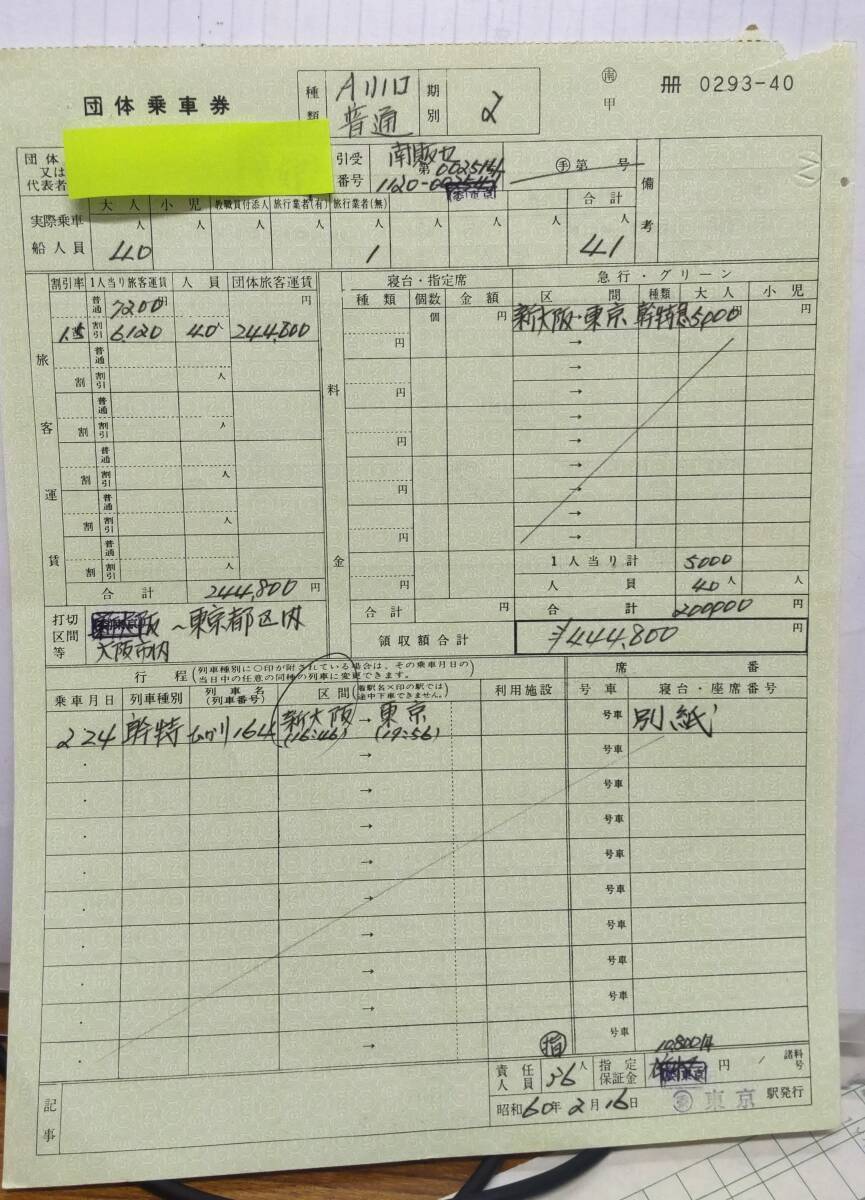 団体乗車券
種類
A小口
普通
期別
2
㊄
甲
冊 0293-40
団体
又は
代表者
引受番号
南販セ
第0025141
1120-
㊙第 号
備考
大人 小児 教職員付添人 旅行業者(有) 旅行業者(無) 合計
実際乗車船人員
40人 人 人 人 1人 人 人 41人
割引率 1人当り旅客運賃 人員 団体旅客運賃
旅客運賃
普通 7200円 円
1.5割 割引 6.120 40人 244,800
普通
割 割引 人
普通
割 割引 人
普通
割 割引 人
普通
割 割引 人
普通
割 割引 人
合計 244,800円
料金
寝台・指定席
種類 個数 金額
個 円
円
円
円
円
円
円
合計 円
急行・グリーン
区間 種類 大人 小児
新大阪→東京 幹特急 5000円 円
→
→
→
→
→
→
→
→
→
1人当り計 5000
人員 40人 人
合計 200000 円
領収額合計 ¥444,800円
打切区間等
大阪市内 ~東京都区内
行程(列車種別に○印が附されている場合は、その乗車月日の当日中の任意の同種の列車に変更できます。)
席番
乗車月日 列車種別 列車名(列車番号) 区間(着駅名×印の駅では途中下車できません。) 利用施設 号車 寝台・座席番号
2 24 幹特 ひかり164 新大阪(16:46)→東京(19:56) 号車 別紙
・ → 号車
・ → 号車
・ → 号車
・ → 号車
・ → 号車
・ → 号車
・ → 号車
・ → 号車
・ → 号車
記事
㊞
責任人員 36人
指定保証金 10,800 円
/ 諸料号
昭和60年2月16日
東京 駅発行